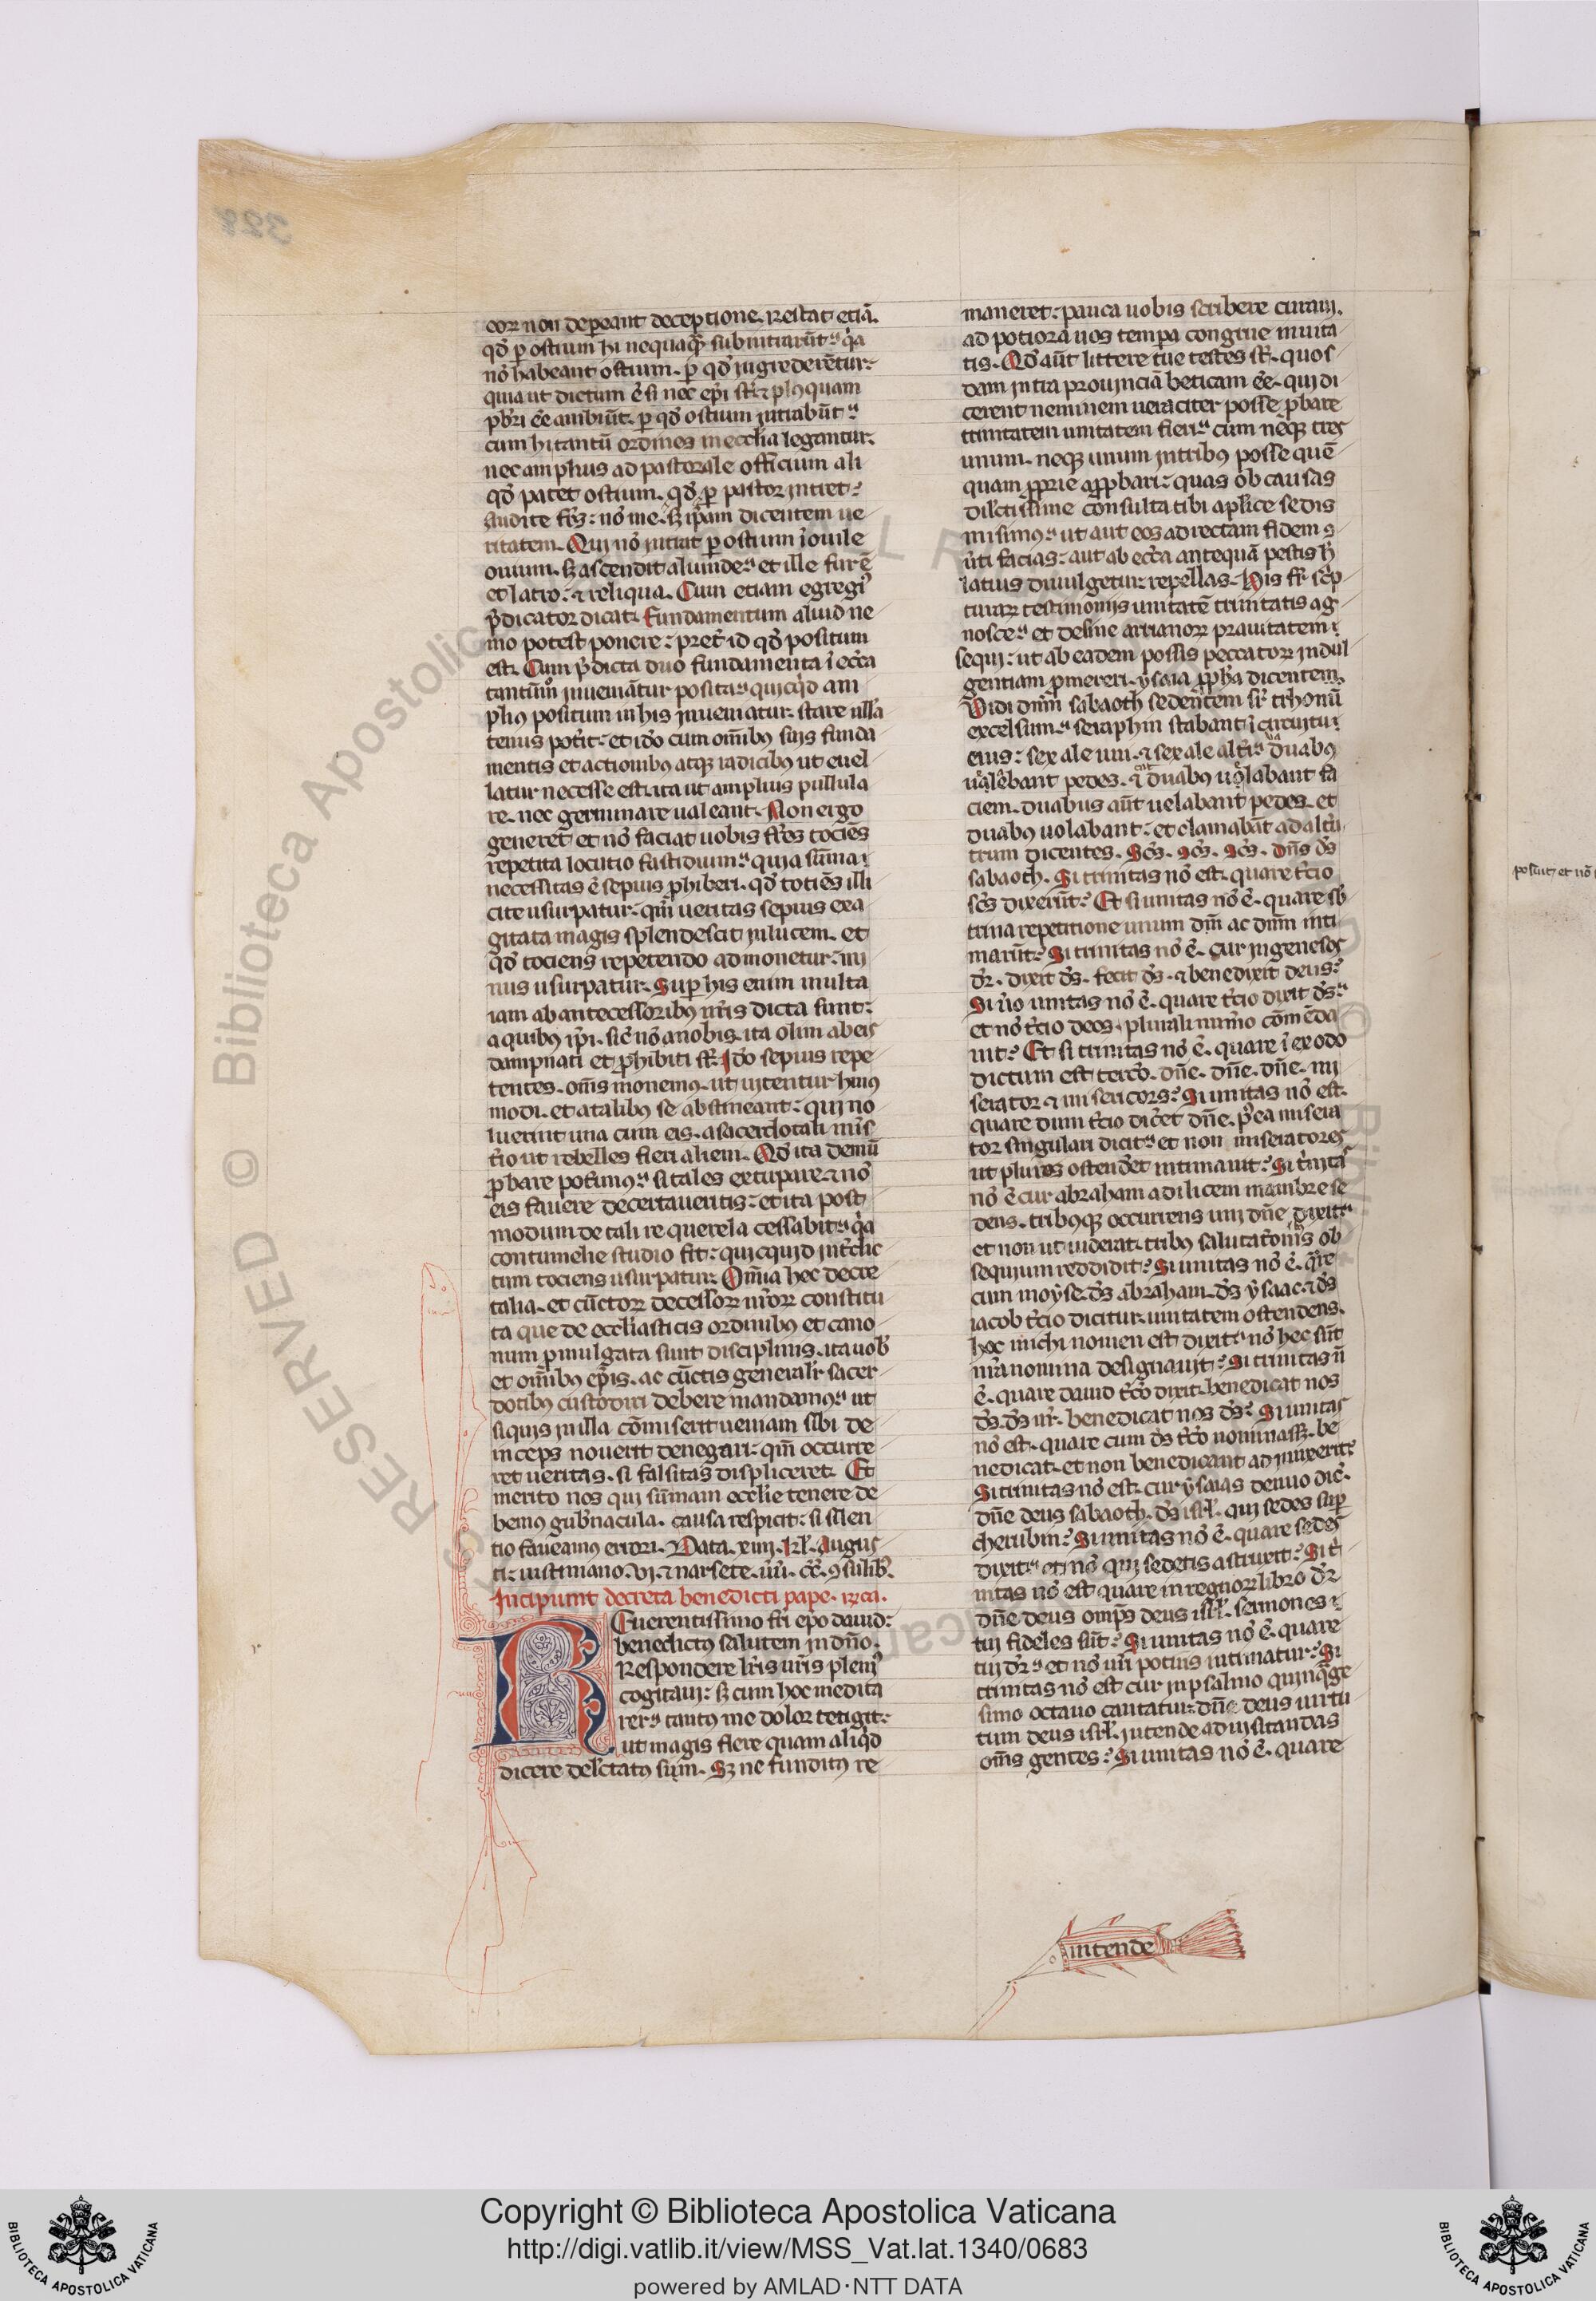 328
eorꝝ non depereant deceptione. Restat etiā.
qd̛ ꝑ ostium hi nequaqꝫ subintrarūt. qͥa
nō habeant ostium. ꝑ qd̛ ingrederētur.
quia ut dictum ē si nec ep̄i sūt plusquam
pb̄ri eē ambiūt. ꝑ qd̛ ostium intrabūt.
cum hi tantū ordines in eccl̄ia legantur.
nec amplius ad pastorale officium ali
qd̛ patet ostium. qd̛ ꝑ pastor intret.
Audite fr̄s. nō me. sꝫ ip̄am dicentem ue
ritatem. Qui nō intrat ꝑ ostium ī ouile
ouium. sꝫ ascendit aliunde. et ille fur ē
et latro. ⁊ reliqua. Cum etiam egregiꝰ
p̄dicator dicat. Fundamentum aliud ne
mo potest ponere. pret̄ id qd̛ positum
est. Cum p̄dicta duo fundamenta ī ecc̄a
tantūmͦ inueniātur posita. quicqͥd am
plius positum in his inueniatur. stare nulla
tenus pot̄it. et iđo cum om̄ibꝰ suis funda
mentis et actionibꝰ atqꝫ radicibꝰ ut euel
latur necesse est. ita ut amplius pullula
re. nec germinare ualeant. Non ergo
generet et nō faciat uobis fr̄es tociēs
repetita locutio fastidium. quia sūma
necessitas ē sepius ꝓhiberi. qd̛ totiēs illi
cite usurpatur. qm̄ ueritas sepius exa
gitata magis splendescit in lucem. et
qd̛ tociens repetendo admonetur. mi
nus usurpatur. Suꝑ his enim multa
iam ab antecessoribꝰ nr̄is dicta sunt.
a quibꝰ ip̄i. sic̄ nō a nobis. ita olim ab eis
dampnati et ꝓhibiti sūt. Iđo sepius repe
tentes. om̄s monemꝰ. ut uitentur huius
modi. et a talibꝰ se abstineant. qui no
luerint una cum eis. a sacerdotali minis
t̄io ut rebelles fieri alieni. Qd̛ ita demū
ꝓbare pot̄imꝰ. si tales extirpare. ⁊ nō
eis fauere decertaueritis. et ita post
modum de tali re querela cessabit. qͥa
contumelie studio fit. quicquid int̄dic
tum tociens usurpatur. Om̄ia hec decre
talia. et cūctorꝝ decessorꝝ nr̄orꝝ constitu
ta que de eccl̄iasticis ordinibꝰ et cano
num ꝓmulgata sunt disciplinis. ita uob̄
et om̄ibꝰ ep̄is. ac cūctis general̄r sacer
dotibꝰ custodiri debere mandamꝰ. ut
siquis in illa cōmiserit ueniam sibi de
inceps nouerit denegari. qm̄ occurre
ret ueritas. si falsitas displiceret. Et
merito nos qui sūmam eccl̄ie tenere de
bemꝰ gub̄nacula. causa respicit. si silen
tio faueamꝰ errori. Data. xiiij. kl̄. Augus
ti. iustiniano. vj. ⁊ narsete. ūū. cc̄. ꝯsulibꝰ.
Incipiunt decreta benedicti pape.
Reuerentissimo fr̄i ep̄o dauid.
benedictus salutem in dn̄o.
Respondere lr̄is ur̄is pleniꝰ
cogitaui. sꝫ cum hoc medita
rer. tantꝰ me dolor tetigit.
ut magis flere quam aliqͥd
dicere delctatꝰ sum. Sꝫ ne funditꝰ re
maneret. pauca uobis scribere curaui.
ad potiora uos tempa congrue inuita
tis. Qd̛ aūt littere tue testes sūt. quos
dam intra prouinciā beticam eē. qui di
cerent neminem ueraciter posse ꝓbare
trinitatem unitatem fieri. cum neqꝫ tres
unum. neqꝫ unum in tribꝰ posse quē
quam ꝓprie aꝓpbari. quas ob causas
dilctissime consulta tibi aplice sedis
misimꝰ. ut aut eos ad rectam fidem ꝯ
u̇ti facias. aut ab ecc̄a antequā pestis h̄
latius diuulgetur. repellas. His fr̄ sc̄p
turarꝝ testimonijs unitatē trinitatis ag
nosce. et desine arrianorꝝ prauitatem
sequi. ut ab eadem possis peccatorꝝ indul
gentiam ꝓmereri. ysaia ꝓph̄a dicentem.
Vidi dn̄m sabaoth sedentem suꝑ trhonū
excelsum. seraphin stabant ī circuitu
eius. sex ale uni. ⁊ sex ale alt̄i. duabꝰ
ualebant pedes. ⁊ duabꝰ uolabant fa
ciem. duabus aūt uelabant pedes. et
duabꝰ uolabant. et clamabāt ad alt̄u
trum dicentes. Sc̄s. sc̄s. sc̄s. dn̄s d̄s
sabaoth. Si trinitas nō est. quare t̄cio
sc̄s dixerūt? Et si unitas nō ē. quare sb̄
trina repetitione unum dm̄ ac dn̄m inti
marūt? Si trinitas nō ē. cur in genesos
dr̄. dixit d̄s. fecit d̄s. ⁊ benedixit deus?
Si u̇o unitas nō ē. quare t̄cio dixit d̄s.
et nō t̄cio deos. plurali num̄o cōmēda
uit? Et si trinitas nō ē. quare ī exodo
dictum est tercō. dn̄e. dn̄e. dn̄e. mi
serator ⁊ misericors? Si unitas nō est.
quare dum t̄cio dic̄et dn̄e. p̄ea misera
tor singulari dicit. et non miseratores
ut plures ostend̄et intimauit? Si t̄nitas
nō ē cur abraham ad ilicem mambre se
dens. tribusqꝫ occurrens uni dn̄e dixit.
et non ut uiderat. tribꝰ salutat̄onis ob
sequium reddidit? Si unitas nō ē. qͣre
cum moyse. d̄s abraham. d̄s ysaac. ⁊ d̄s
iacob t̄cio dicitur. unitatem ostendens.
hoc michi nomen est dixit. nō hec sūt
mͣ nomina designauit? Si trinitas n̄
ē. quare dauid t̄cō dixit. benedicat nos
d̄s. d̄s nr̄. benedicat nos d̄s? Si unitas
nō est. quare cum d̄s t̄cō nominasꝫ. be
nedicat. et non benedicant adiunxerit?
Si trinitas nō est. cur ysaias denuo dic̄.
dn̄e deus sabaoth. d̄s isrl̄. qui sedes suꝑ
cherubin? Si unitas nō ē. quare sedes
dixit. et nō qui sedetis astruxit? Si t̄i
nitas nō est quare in regnorꝝ libro dr̄
dn̄e deus omp̄s deus isrl̄. sermones
tui fideles sūt? Si unitas nō ē. quare
tui dr̄. et nō ur̄i potius intimatur? Si
trinitas nō est cur in psalmo quinqͣge
simo octauo cantatur. dn̄e deus uirtu
tum deus isrl̄. intende ad uisitandas
om̄s gentes? Si unitas nō ē. quare
intende
posuit et nō
Copyright © Biblioteca Apostolica Vaticana
http://digi.vatlib.it/view/MSS_Vat.lat.1340/0683
powered by AMLAD·NTT DATA
BIBLIOTECA APOSTOLICA VATICANA
BIBLIOTECA APOSTOLICA VATICANA